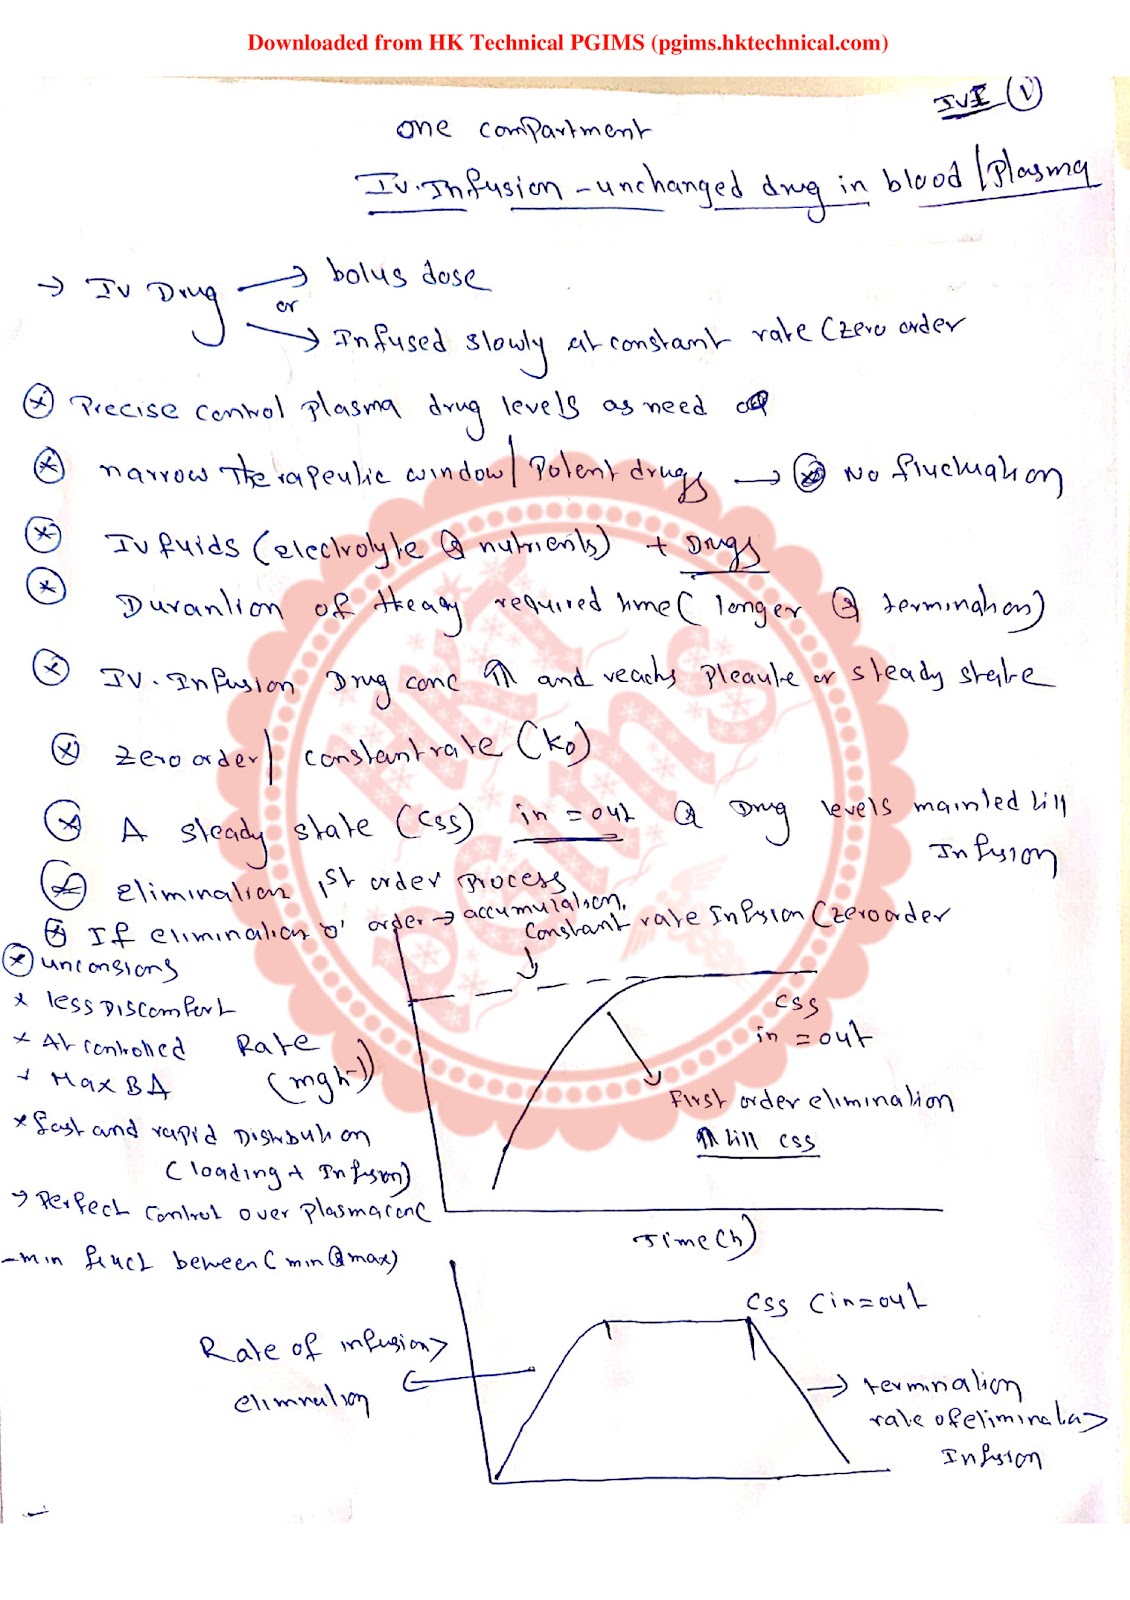 Downloaded from HK Technical PGIMS (pgims.hktechnical.com)
IVI (1)
one compartment
Iv.Infusion - unchanged drug in blood / Plasma
→ Iv Drug → bolus dose
or
→ Infused slowly at constant rate (zero order
Precise control plasma drug levels as need
narrow Therapeutic window / Potent drugs → No fluctuation
Iv fuids (electrolyte & nutrients) + Drugs
Durantion of theapy required time ( longer & termination)
IV. Infusion Drug conc ⇑ and reachs pleaute or steady state
zero order / constant rate (k0)
A steady state (Css) in = out & Drug levels mainted till
Infusion
elimination 1st order process
If elimination 0' order → accumulation.
constant rate Infusion (zero order
unconsions
* less Discomfort
* At controlled
+ Max BA
* fast and rapid Distribution
(loading + Infusion)
→ Perfect control over plasma conc
- min fluct beween (min & max)
Rate
(mgh-1)
Css
in = out
First order elimination
⇑ till css
Time (h)
Css (in = out
Rate of infusion >
elimination
→ termination
rate of elimination >
Infusion
HKT
PGIMS